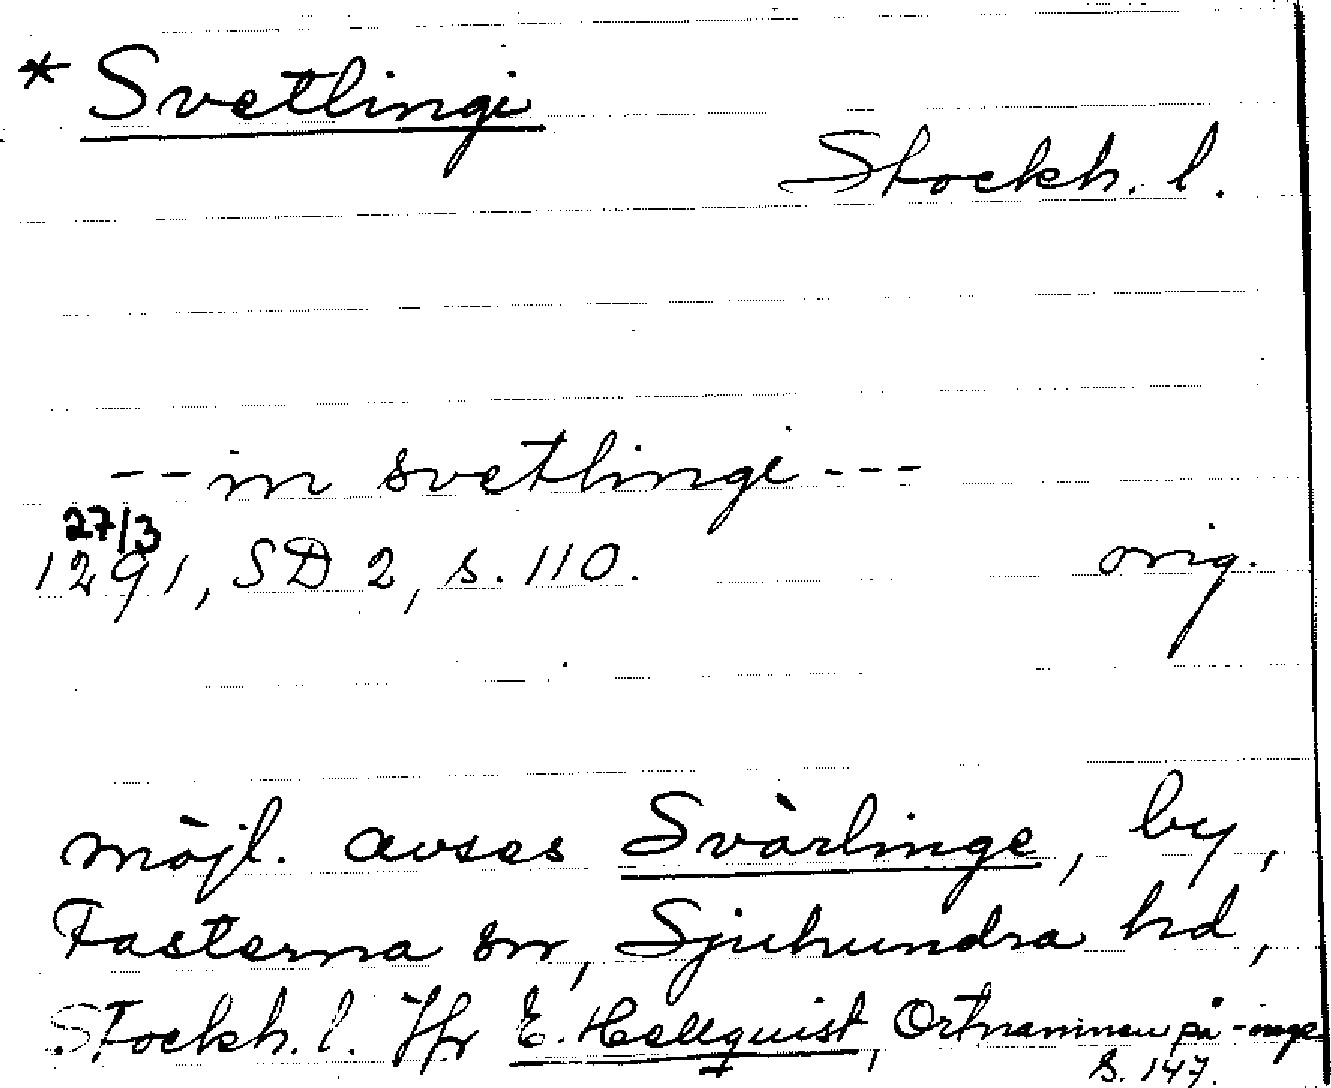 * Svetlingi
Stockh. l.
-- in svetlingi ---
27/3
1291, SD 2, s. 110. orig.
möjl. avses Svärlinge, by,
Fasterna sn, Sjuhundra hd,
Stockh. l. Jfr E. Hellquist, Ortnamnen på -inge
s. 147.